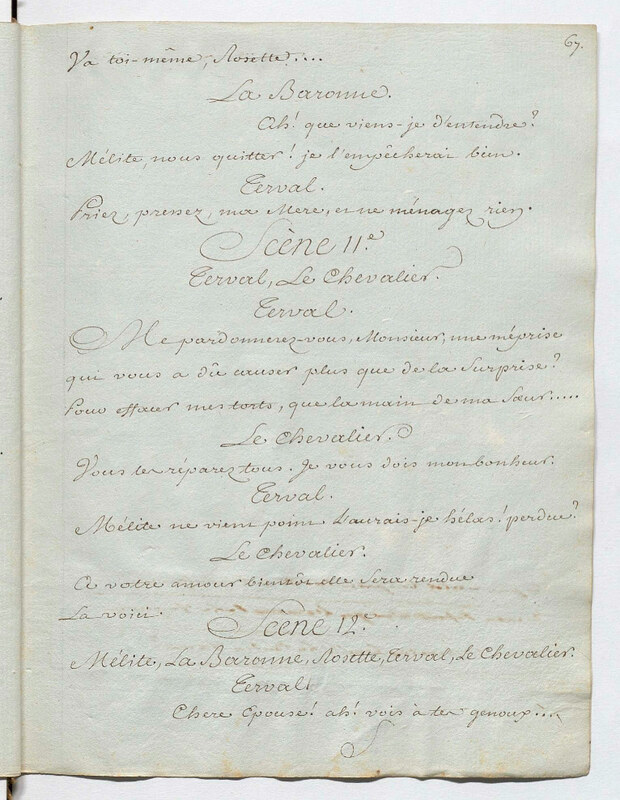 67.
Va toi-même, Rosette....
La Baronne.
Ah! que viens-je d'entendre?
Mélite, nous quitter! je l'empêcherai bien.
Terval.
Priez, pressez, ma Mere, et ne ménagez rien.
Scène 11.e
Terval, Le Chevalier.
Terval.
Me pardonnerez-vous, Monsieur, une méprise
qui vous a dû causer plus que de la Surprise?
Pour effacer mes torts, que la main de ma Sœur.....
Le Chevalier.
Vous les réparez tous. Je vous dois mon bonheur.
Terval.
Mélite ne vient point L'aurais-je hélas! perdue?
Le Chevalier.
A votre amour bientôt elle Sera rendue
La voici.
Scène 12.e
Mélite, La Baronne, Rosette, Terval, Le Chevalier.
Terval.
Chere Epouse! ah! vois à tes genoux....